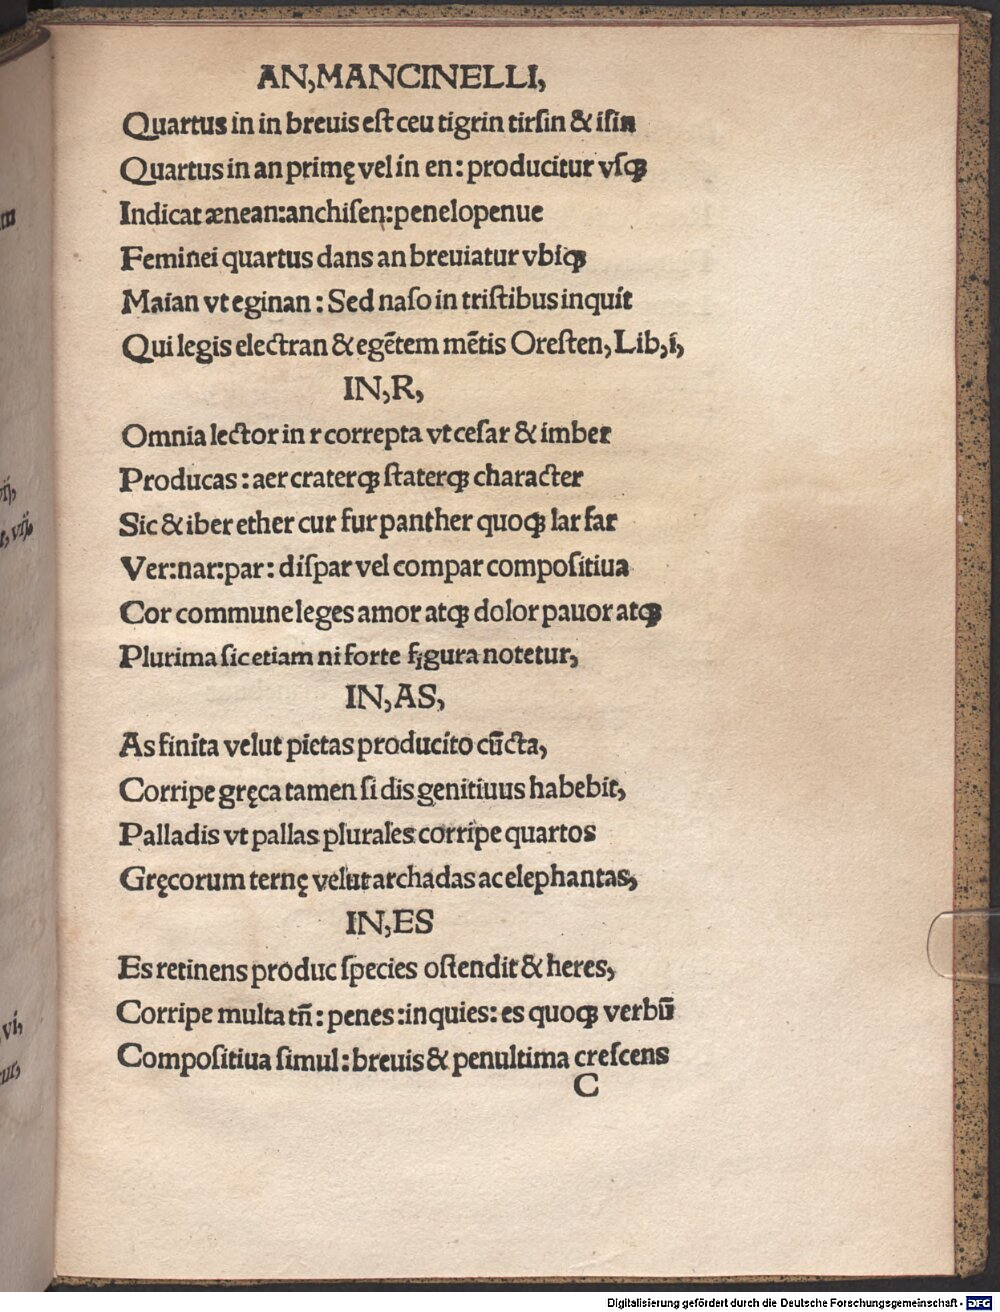 AN,MANCINELLI,
Quartus in in breuis eſt ceu tigrin tirſin & iſin
Quartus in an primę vel in en: producitur vſqꝫ
Indicat ænean:anchiſen:penelopenue
Feminei quartus dans an breuiatur vbiqꝫ
Maian vt eginan: Sed naſo in triſtibus inquit
Qui legis electran & egētem mētis Oreſten, Lib,i,
IN,R,
Omnia lector in r correpta vt ceſar & imber
Producas: aer craterqꝫ ſtaterqꝫ character
Sic & iber ether cur fur panther quoqꝫ lar far
Ver:nar:par: diſpar vel compar compoſitiua
Cor commune leges amor atqꝫ dolor pauor atqꝫ
Plurima ſic etiam ni forte figura notetur,
IN,AS,
As finita velut pietas producito cūcta,
Corripe gręca tamen ſi dis genitiuus habebit,
Palladis vt pallas plurales corripe quartos
Gręcorum ternę velut archadas ac elephantas,
IN,ES
Es retinens produc ſpecies oſtendit & heres,
Corripe multa tñ: penes:inquies: es quoqꝫ verbū
Compoſitiua ſimul: breuis & penultima creſcens
C
vij,
vij.
vi,
Digitalisierung gefördert durch die Deutsche Forschungsgemeinschaft - DFG